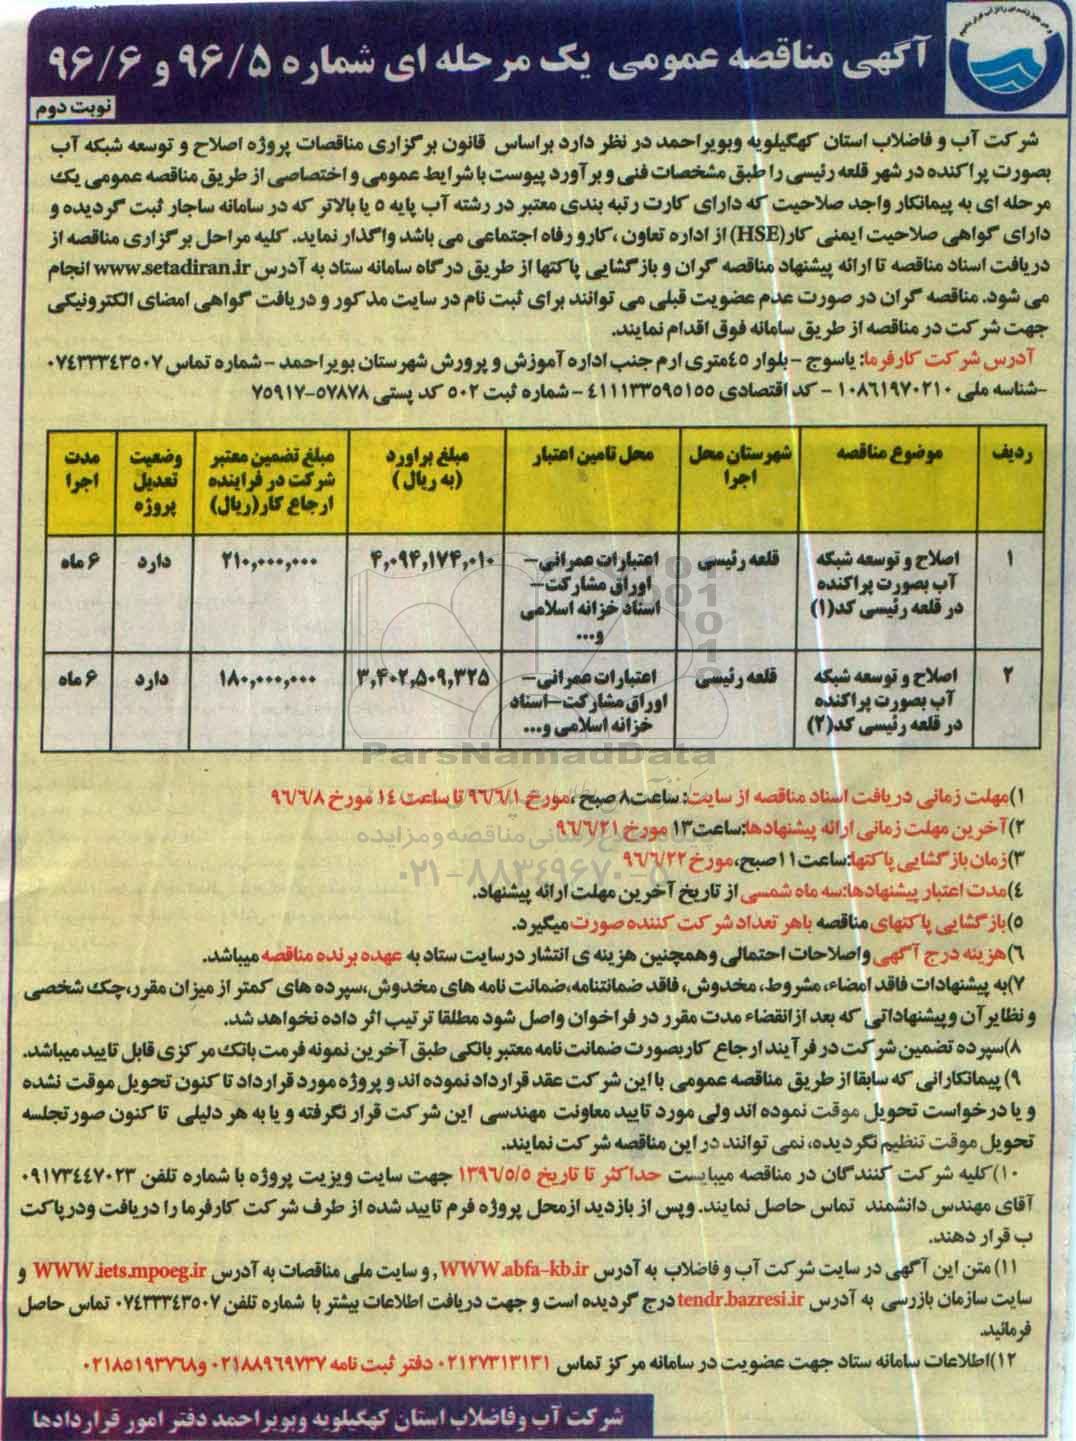 آگهی مناقصه عمومی یک مرحله ای شماره ۹۶/۵ و ۹۶/۶
نوبت دوم
شرکت آب و فاضلاب استان کهگیلویه وبویراحمد در نظر دارد براساس قانون برگزاری مناقصات پروژه اصلاح و توسعه شبکه آب
بصورت پراکنده در شهر قلعه رئیسی را طبق مشخصات فنی و برآورد پیوست با شرایط عمومی و اختصاصی از طریق مناقصه عمومی یک
مرحله ای به پیمانکار واجد صلاحیت که دارای کارت رتبه بندی معتبر در رشته آب پایه ۵ یا بالاتر که در سامانه ساجار ثبت گردیده و
دارای گواهی صلاحیت ایمنی کار(HSE) از اداره تعاون ،کارو رفاه اجتماعی می باشد واگذار نماید. کلیه مراحل برگزاری مناقصه از
دریافت اسناد مناقصه تا ارائه پیشنهاد مناقصه گران و بازگشایی پاکتها از طریق درگاه سامانه ستاد به آدرس www.setadiran.ir انجام
می شود. مناقصه گران در صورت عدم عضویت قبلی می توانند برای ثبت نام در سایت مذکور و دریافت گواهی امضای الکترونیکی
جهت شرکت در مناقصه از طریق سامانه فوق اقدام نمایند.
آدرس شرکت کارفرما: یاسوج - بلوار ٤٥متری ارم جنب اداره آموزش و پرورش شهرستان بویراحمد - شماره تماس ۰۷٤۳۳۳٤۳۵۰۷
-شناسه ملی ۱۰۸٦۱۹۷۰۲۱۰ - کد اقتصادی ٤۱۱۱۳۳۵۹۵۱۵۵ - شماره ثبت ۵۰۲ کد پستی ۵۷۸۷۸-۷۵۹۱۷
ردیف موضوع مناقصه شهرستان محل اجرا محل تامین اعتبار مبلغ براورد (به ریال) مبلغ تضمین معتبر شرکت در فراینده ارجاع کار(ریال) وضعیت تعدیل پروژه مدت اجرا
۱ اصلاح و توسعه شبکه آب بصورت پراکنده در قلعه رئیسی کد(۱) قلعه رئیسی اعتبارات عمرانی- اوراق مشارکت- اسناد خزانه اسلامی و... ۴,۰۹۴,۱۷۴,۰۱۰ ۲۱۰,۰۰۰,۰۰۰ دارد ۶ ماه
۲ اصلاح و توسعه شبکه آب بصورت پراکنده در قلعه رئیسی کد(۲) قلعه رئیسی اعتبارات عمرانی- اوراق مشارکت-اسناد خزانه اسلامی و... ۳,۴۰۲,۵۰۹,۳۲۵ ۱۸۰,۰۰۰,۰۰۰ دارد ۶ ماه
ParsNamadData
۰۲۱-۸۸۳۴۹۶۷۰-۵
۱)مهلت زمانی دریافت اسناد مناقصه از سایت: ساعت۸ صبح ،مورخ ۹٦/٦/۱ تا ساعت ۱٤ مورخ ۹٦/٦/۸
۲)آخرین مهلت زمانی ارائه پیشنهادها:ساعت۱۳ مورخ ۹٦/٦/۲۱
۳)زمان بازگشایی پاکتها:ساعت۱۱صبح،مورخ ۹٦/٦/۲۲
٤)مدت اعتبار پیشنهادها:سه ماه شمسی از تاریخ آخرین مهلت ارائه پیشنهاد.
۵)بازگشایی پاکتهای مناقصه باهر تعداد شرکت کننده صورت میگیرد.
٦)هزینه درج آگهی واصلاحات احتمالی وهمچنین هزینه ی انتشار درسایت ستاد به عهده برنده مناقصه میباشد.
۷)به پیشنهادات فاقد امضاء، مشروط، مخدوش، فاقد ضمانتنامه،ضمانت نامه های مخدوش،سپرده های کمتر از میزان مقرر،چک شخصی
و نظایرآن وپیشنهاداتی که بعد ازانقضاء مدت مقرر در فراخوان واصل شود مطلقا ترتیب اثر داده نخواهد شد.
۸)سپرده تضمین شرکت در فرآیند ارجاع کاربصورت ضمانت نامه معتبر بانکی طبق آخرین نمونه فرمت بانک مرکزی قابل تایید میباشد.
۹) پیمانکارانی که سابقا از طریق مناقصه عمومی با این شرکت عقد قرارداد نموده اند و پروژه مورد قرارداد تا کنون تحویل موقت نشده
و یا درخواست تحویل موقت نموده اند ولی مورد تایید معاونت مهندسی این شرکت قرار نگرفته و یا به هر دلیلی تا کنون صورتجلسه
تحویل موقت تنظیم نگردیده، نمی توانند در این مناقصه شرکت نمایند.
۱۰)کلیه شرکت کنندگان در مناقصه میبایست حداکثر تا تاریخ ۱۳۹٦/۵/۵ جهت سایت ویزیت پروژه با شماره تلفن ۰۹۱۷۳٤٤۷۰۲۳
آقای مهندس دانشمند تماس حاصل نمایند. وپس از بازدید ازمحل پروژه فرم تایید شده از طرف شرکت کارفرما را دریافت ودرپاکت
ب قرار دهند.
۱۱) متن این آگهی در سایت شرکت آب و فاضلاب به آدرس WWW.abfa-kb.ir , و سایت ملی مناقصات به آدرس WWW.iets.mpoeg.ir و
سایت سازمان بازرسی به آدرس tendr.bazresi.ir درج گردیده است و جهت دریافت اطلاعات بیشتر با شماره تلفن ۰۷٤۳۳۳٤۳۵۰۷ تماس حاصل
فرمائید.
۱۲)اطلاعات سامانه ستاد جهت عضویت در سامانه مرکز تماس ۰۲۱۲۷۳۱۳۱۳۱ دفتر ثبت نامه ۰۲۱۸۸۹٦۹۷۳۷ و۰۲۱۸۵۱۹۳۷٦۸
شرکت آب وفاضلاب استان کهگیلویه وبویراحمد دفتر امور قراردادها